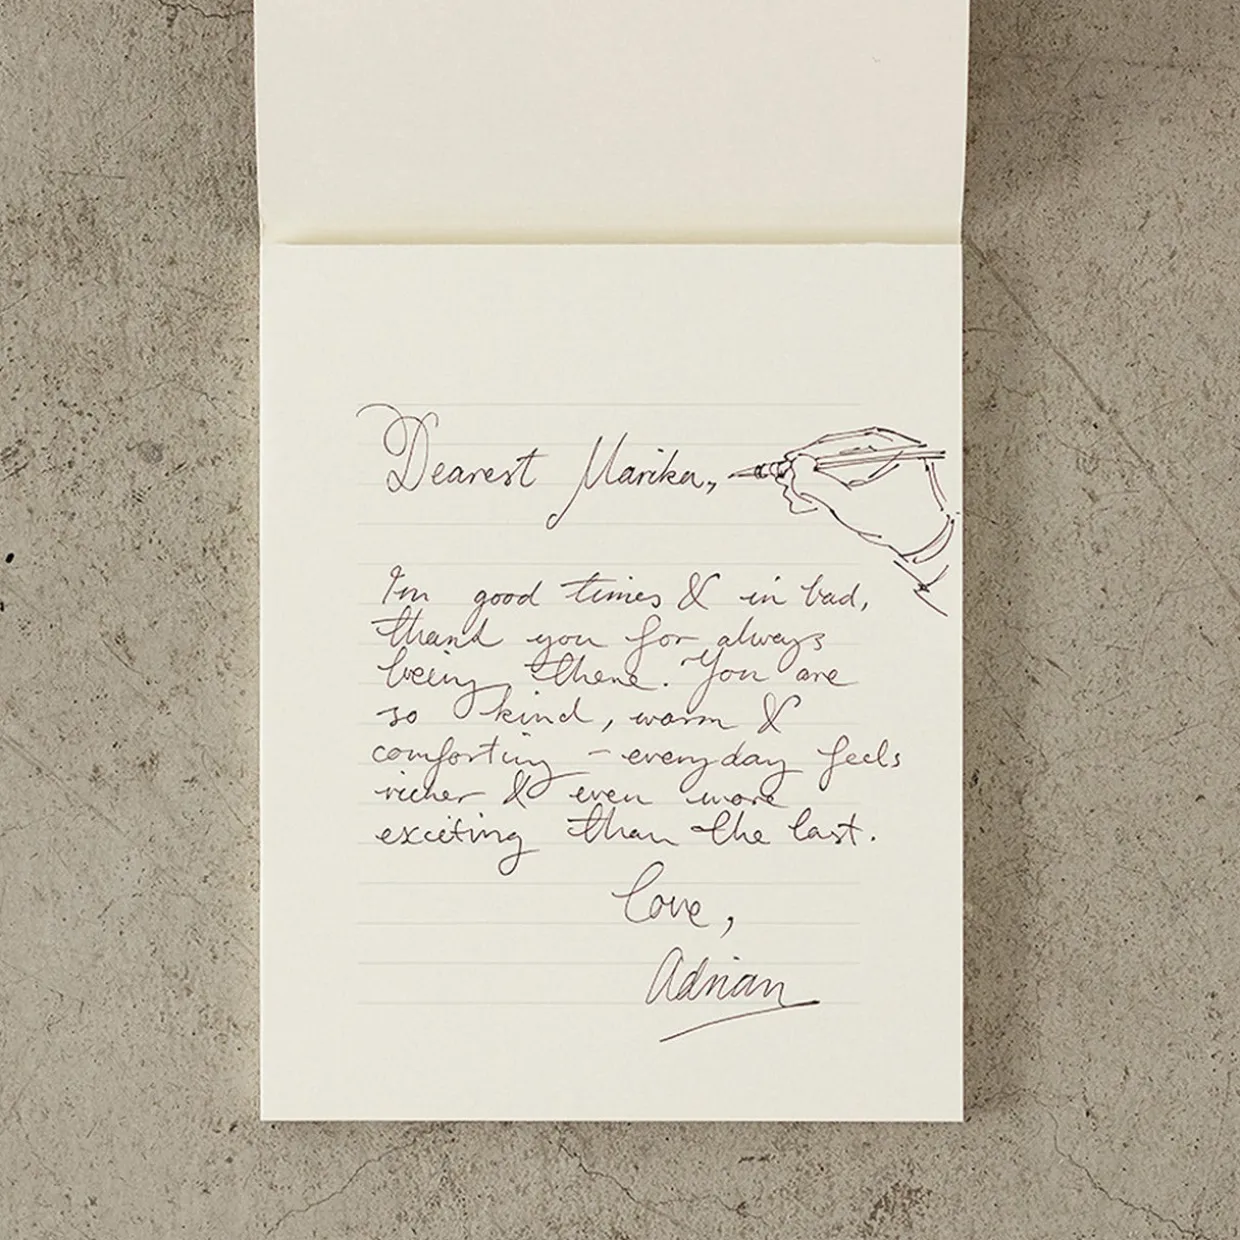 Dearest Marika,
In good times & in bad,
thank you for always
being there. You are
so kind, warm &
comforting - everyday feels
richer & even more
exciting than the last.
Love,
Adrian